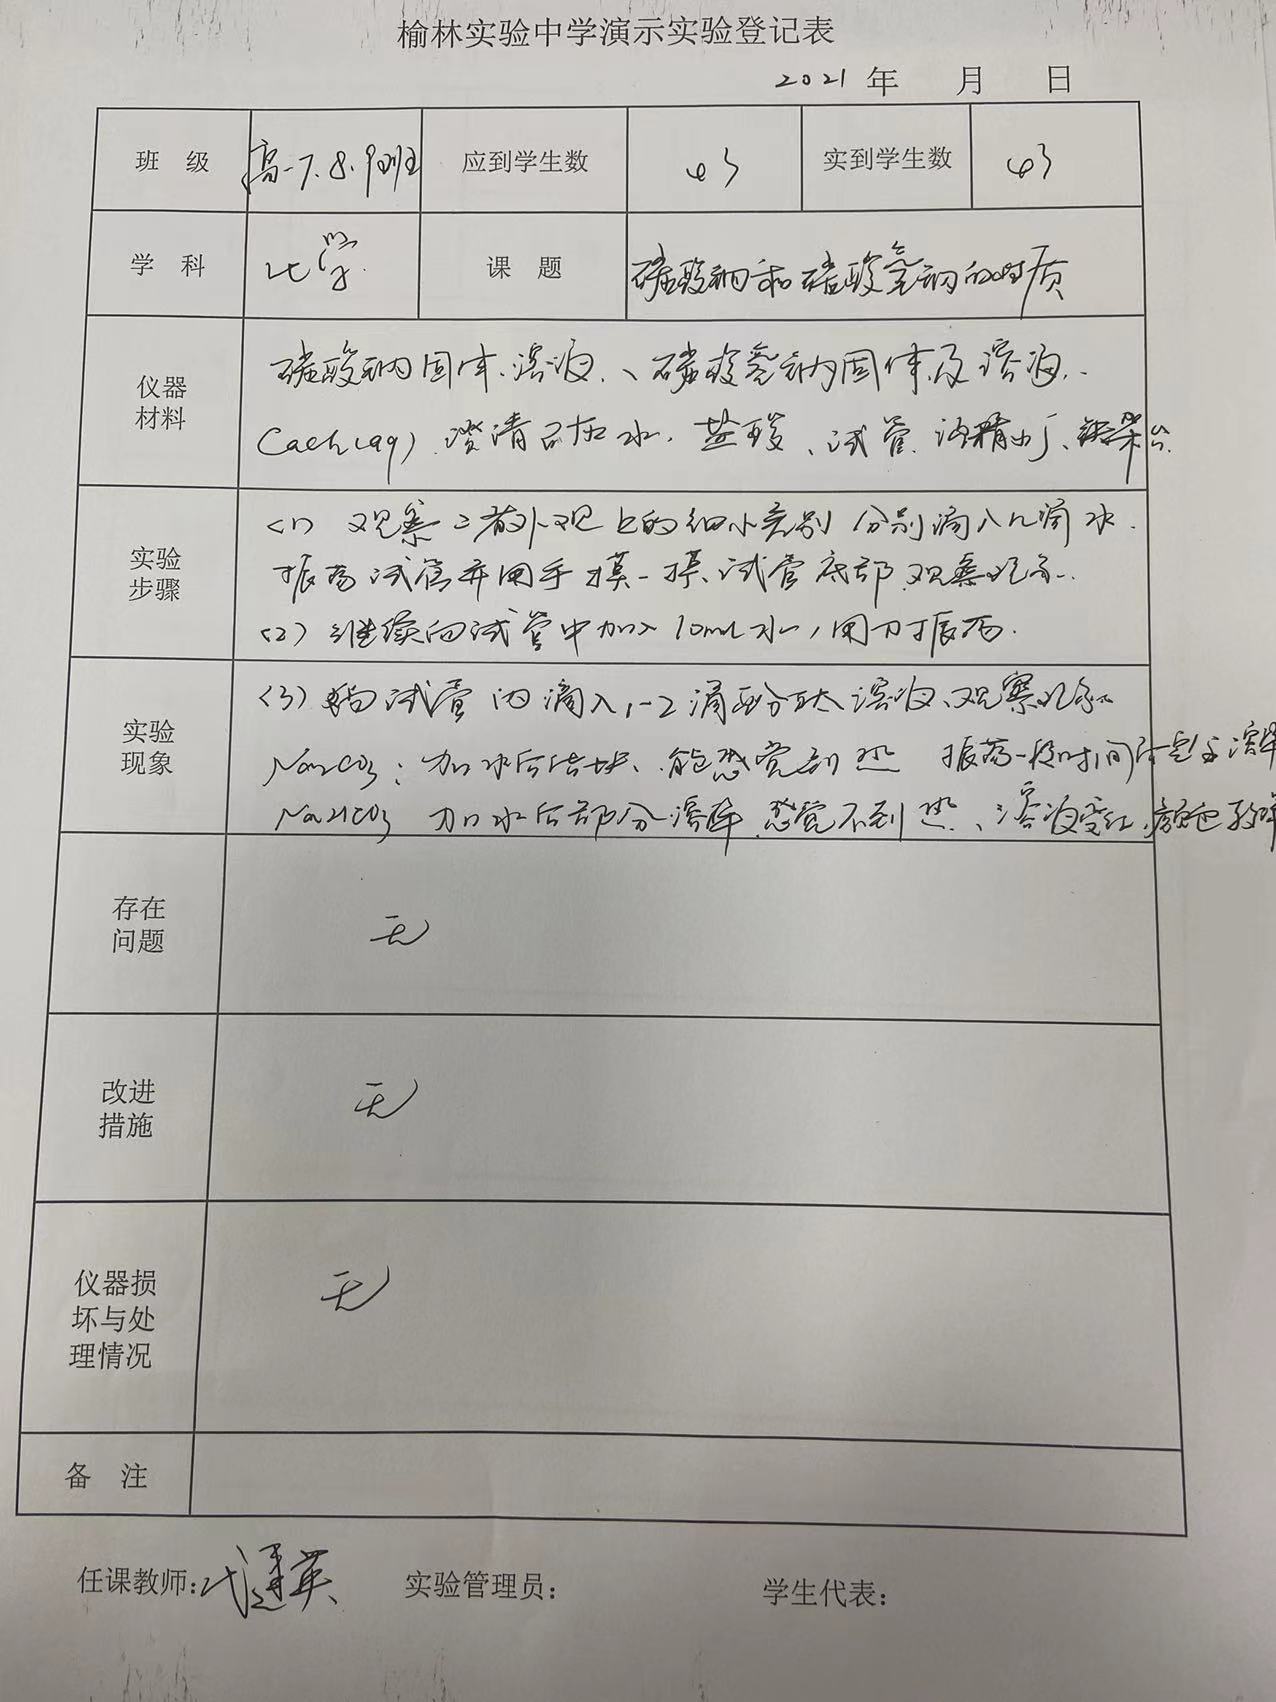 榆林实验中学演示实验登记表
2021 年 月 日
班 级 高一7.8.9班 应到学生数 43 实到学生数 43
学 科 化学 课 题 碳酸钠和碳酸氢钠的性质
仪器材料
碳酸钠固体、溶液、、碳酸氢钠固体及溶液、
CaCl2(aq) 澄清石灰水、盐酸、试管、酒精灯、铁架台
实验步骤
(1) 观察二者外观上的细小差别 分别滴入几滴水.
振荡试管并用手摸一摸试管底部,观察现象.
(2) 继续向试管中加入10mL水,用力振荡.
实验现象
(3) 向试管内滴入1-2滴酚酞溶液、观察现象
Na2CO3: 加水后结块、能感觉到热 振荡一段时间后 溶解
NaHCO3 加水后部分溶解 感觉不到热、溶液变红,颜色较
存在问题 无
改进措施 无
仪器损坏与处理情况 无
备 注
任课教师: 实验管理员: 学生代表: